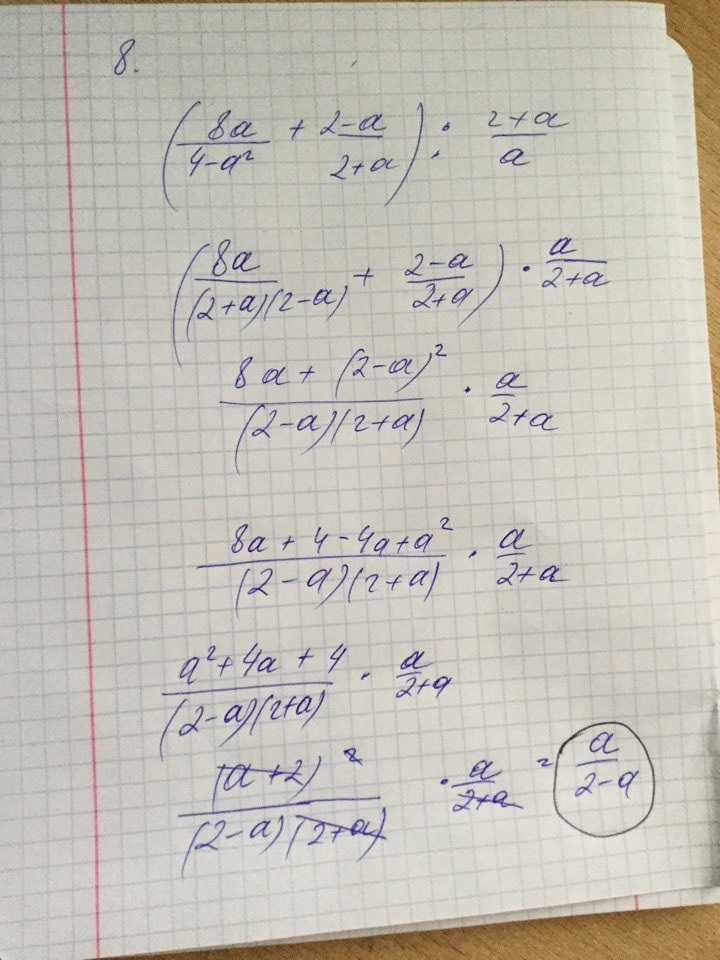 8.
(8a/(4-a²) + (2-a)/(2+a)) : (2+a)/a
(8a/((2+a)(2-a)) + (2-a)/(2+a)) · a/(2+a)
(8a + (2-a)²)/((2-a)(2+a)) · a/(2+a)
(8a + 4 - 4a + a²)/((2-a)(2+a)) · a/(2+a)
(a² + 4a + 4)/((2-a)(2+a)) · a/(2+a)
(a+2)²/((2-a)(2+a)) · a/(2+a) = a/(2-a)